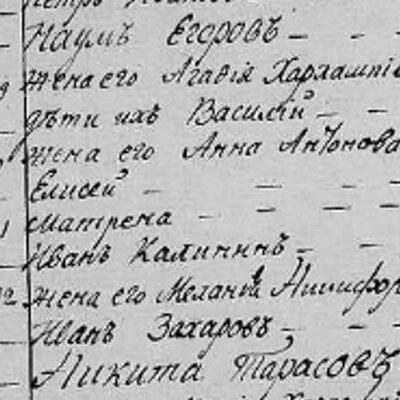 Наумъ Егоровъ
жена его Агафія Харлампі
дѣти ихъ Василій
жена его Анна Антонова
Елисей
Матрена
Иванъ Калининъ
12 жена его Меланія Никифор
Иванъ Захаровъ
Никита Тарасовъ